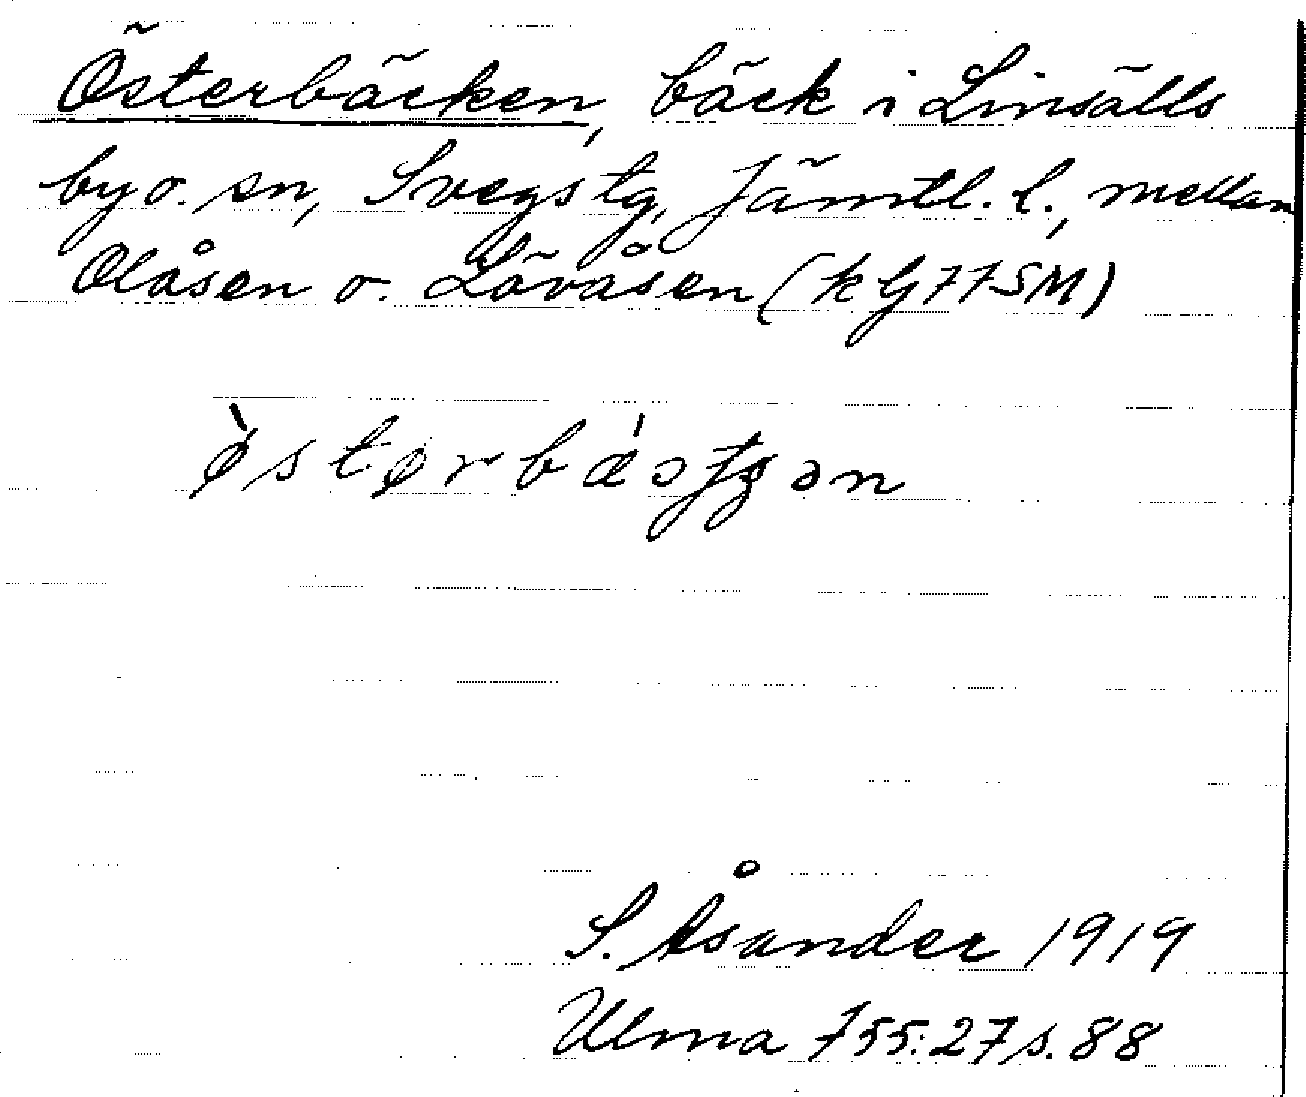 Österbäcken, bäck i Linsälls
by o. sn, Svegs tg, Jämtl. l., mellan
Olåsen o. Lövåsen (k G 77 SM)
S. Åsander 1919
Ulma 755:27 s. 88